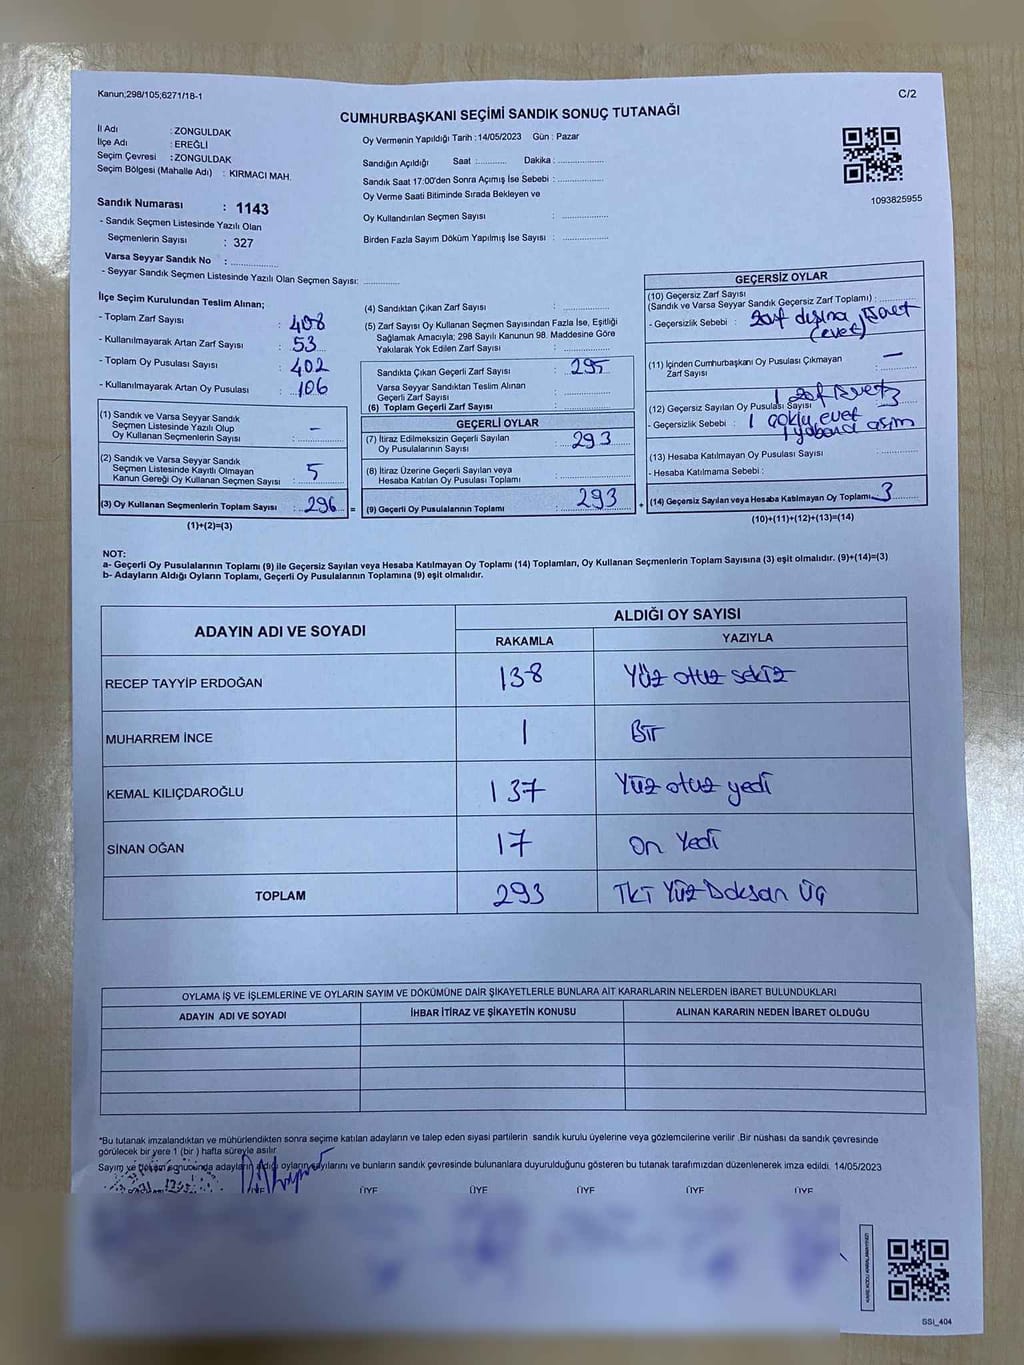 Kanun;298/105;6271/18-1
C/2
CUMHURBAŞKANI SEÇİMİ SANDIK SONUÇ TUTANAĞI
İl Adı : ZONGULDAK
İlçe Adı : EREĞLİ
Seçim Çevresi : ZONGULDAK
Seçim Bölgesi (Mahalle Adı) : KIRMACI MAH.
Oy Vermenin Yapıldığı Tarih : 14/05/2023 Gün : Pazar
Sandığın Açıldığı Saat :........... Dakika :................
Sandık Saat 17:00'den Sonra Açımış İse Sebebi :................
Oy Verme Saati Bitiminde Sırada Bekleyen ve
Oy Kullandırılan Seçmen Sayısı : ................
Birden Fazla Sayım Döküm Yapılmış İse Sayısı : ................
1093825955
Sandık Numarası : 1143
- Sandık Seçmen Listesinde Yazılı Olan
Seçmenlerin Sayısı : 327
Varsa Seyyar Sandık No : ................
- Seyyar Sandık Seçmen Listesinde Yazılı Olan Seçmen Sayısı: ............
İlçe Seçim Kurulundan Teslim Alınan;
- Toplam Zarf Sayısı : 408
- Kullanılmayarak Artan Zarf Sayısı : 53
- Toplam Oy Pusulası Sayısı : 402
- Kullanılmayarak Artan Oy Pusulası : 106
(1) Sandık ve Varsa Seyyar Sandık
Seçmen Listesinde Yazılı Olup
Oy Kullanan Seçmenlerin Sayısı : -
(2) Sandık ve Varsa Seyyar Sandık
Seçmen Listesinde Kayıtlı Olmayan
Kanun Gereği Oy Kullanan Seçmen Sayısı : 5
(3) Oy Kullanan Seçmenlerin Toplam Sayısı : 296 =
(1)+(2)=(3)
(4) Sandıktan Çıkan Zarf Sayısı : ................
(5) Zarf Sayısı Oy Kullanan Seçmen Sayısından Fazla İse, Eşitliği
Sağlamak Amacıyla; 298 Sayılı Kanunun 98. Maddesine Göre
Yakılarak Yok Edilen Zarf Sayısı : ................
Sandıkta Çıkan Geçerli Zarf Sayısı : 295
Varsa Seyyar Sandıktan Teslim Alınan
Geçerli Zarf Sayısı : ................
(6) Toplam Geçerli Zarf Sayısı : ................
GEÇERLİ OYLAR
(7) İtiraz Edilmeksizin Geçerli Sayılan
Oy Pusulalarının Sayısı : 293
(8) İtiraz Üzerine Geçerli Sayılan veya
Hesaba Katılan Oy Pusulası Toplamı : ................
(9) Geçerli Oy Pusulalarının Toplamı : 293 +
GEÇERSİZ OYLAR
(10) Geçersiz Zarf Sayısı
(Sandık ve Varsa Seyyar Sandık Geçersiz Zarf Toplamı) : ............
- Geçersizlik Sebebi : Zarf dışına işaret
(evet)
(11) İçinden Cumhurbaşkanı Oy Pusulası Çıkmayan
Zarf Sayısı : —
1 zarf
(12) Geçersiz Sayılan Oy Pusulası Sayısı 3
- Geçersizlik Sebebi : 1 çoklu evet
1 yabancı
(13) Hesaba Katılmayan Oy Pusulası Sayısı : ............
- Hesaba Katılmama Sebebi :
(14) Geçersiz Sayılan veya Hesaba Katılmayan Oy Toplamı : 3
(10)+(11)+(12)+(13)=(14)
NOT:
a- Geçerli Oy Pusulalarının Toplamı (9) ile Geçersiz Sayılan veya Hesaba Katılmayan Oy Toplamı (14) Toplamları, Oy Kullanan Seçmenlerin Toplam Sayısına (3) eşit olmalıdır. (9)+(14)=(3)
b- Adayların Aldığı Oyların Toplamı, Geçerli Oy Pusulalarının Toplamına (9) eşit olmalıdır.
ADAYIN ADI VE SOYADI
ALDIĞI OY SAYISI
RAKAMLA YAZIYLA
RECEP TAYYİP ERDOĞAN 138 Yüz otuz sekiz
MUHARREM İNCE 1 Bir
KEMAL KILIÇDAROĞLU 137 Yüz otuz yedi
SİNAN OĞAN 17 On Yedi
TOPLAM 293 İki Yüz Doksan Üç
OYLAMA İŞ VE İŞLEMLERİNE VE OYLARIN SAYIM VE DÖKÜMÜNE DAİR ŞİKAYETLERLE BUNLARA AİT KARARLARIN NELERDEN İBARET BULUNDUKLARI
ADAYIN ADI VE SOYADI İHBAR İTİRAZ VE ŞİKAYETİN KONUSU ALINAN KARARIN NEDEN İBARET OLDUĞU
*Bu tutanak imzalandıktan ve mühürlendikten sonra seçime katılan adayların ve talep eden siyasi partilerin sandık kurulu üyelerine veya gözlemcilerine verilir .Bir nüshası da sandık çevresinde
görülecek bir yere 1 (bir ) hafta süreyle asılır.
Sayım ve döküm sonucunda adayların aldığı oyların sayılarını ve bunların sandık çevresinde bulunanlara duyurulduğunu gösteren bu tutanak tarafımızdan düzenlenerek imza edildi. 14/05/2023
ÜYE ÜYE ÜYE ÜYE ÜYE
SSI_404